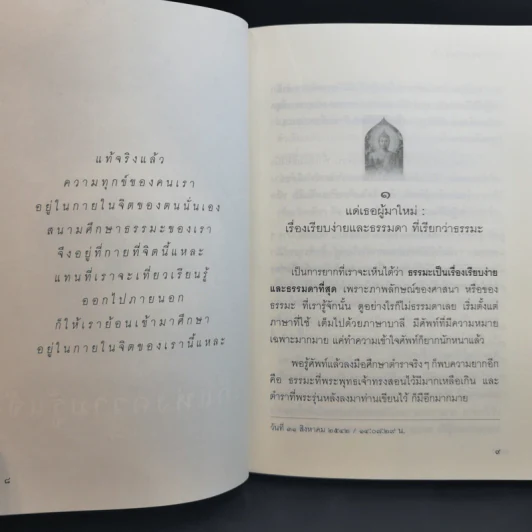 แท้จริงแล้ว
ความทุกข์ของคนเรา
อยู่ในกายในจิตของตนนั่นเอง
สนามศึกษาธรรมะของเรา
จึงอยู่ที่กายที่จิตนี้แหละ
แทนที่เราจะเที่ยวเรียนรู้
ออกไปภายนอก
ก็ให้เราย้อนเข้ามาศึกษา
อยู่ในกายในจิตของเรานี้แหละ
๘
๑
แด่เธอผู้มาใหม่ :
เรื่องเรียบง่ายและธรรมดา ที่เรียกว่าธรรมะ
เป็นการยากที่เราจะเห็นได้ว่า ธรรมะเป็นเรื่องเรียบง่าย
และธรรมดาที่สุด เพราะภาพลักษณ์ของศาสนา หรือของ
ธรรมะ ที่เรารู้จักนั้น ดูอย่างไรก็ไม่ธรรมดาเลย เริ่มตั้งแต่
ภาษาที่ใช้ เต็มไปด้วยภาษาบาลี มีศัพท์ที่มีความหมาย
เฉพาะมากมาย แค่ทำความเข้าใจศัพท์ก็ยากนักหนาแล้ว
พอรู้ศัพท์แล้วลงมือศึกษาตำราจริงๆ ก็พบความยากอีก
คือ ธรรมะที่พระพุทธเจ้าทรงสอนไว้มีมากเหลือเกิน และ
ตำราที่พระรุ่นหลังลงมาท่านเขียนไว้ ก็มีอีกมากมาย
วันที่ ๓๑ สิงหาคม ๒๕๔๒ / น.
๙